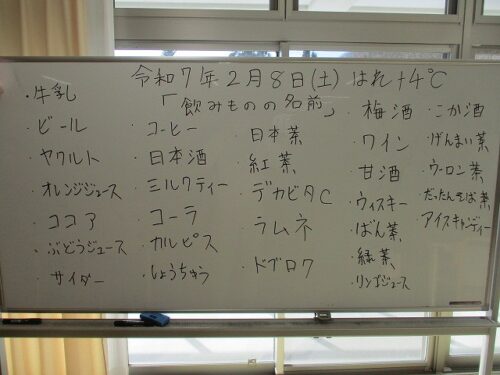 令和7年2月8日(土) はれ +4℃
「飲みものの名前」
・牛乳
・ビール
・ヤクルト
・オレンジジュース
・ココア
・ぶどうジュース
・サイダー
・コーヒー
・日本酒
・ミルクティー
・コーラ
・カルピス
・しょうちゅう
・日本茶
・紅茶
・デカビタC
・ラムネ
・ドブロク
・梅酒
・ワイン
・甘酒
・ウィスキー
・ばん茶
・緑茶
・リンゴジュース
・こか酒
・げんまい茶
・ウーロン茶
・だったんそば茶
・アイスキャンディー